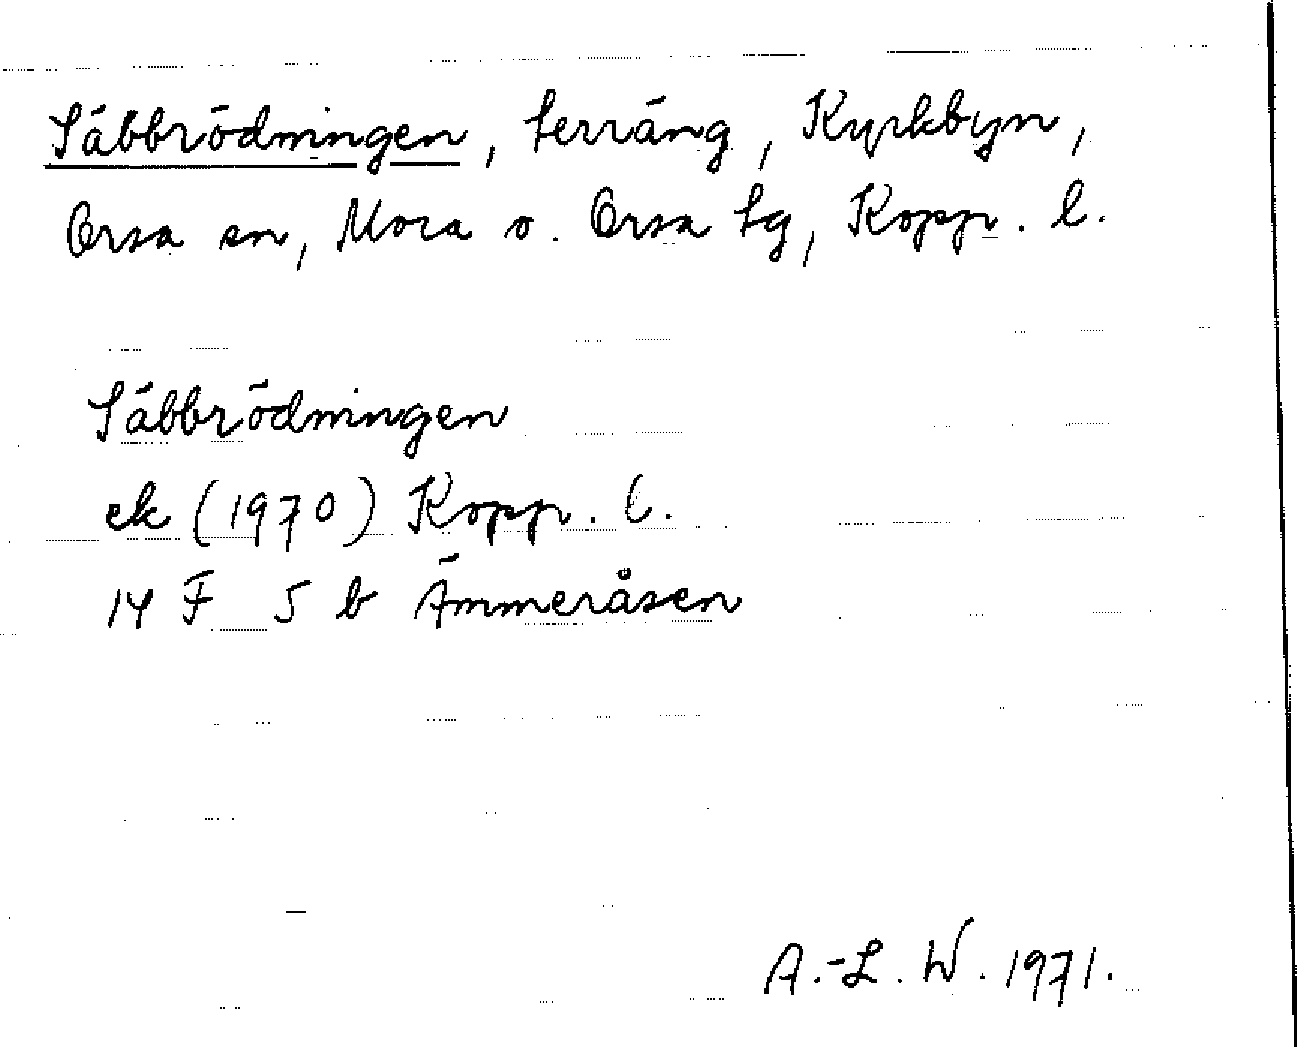 Säbbrödningen, terräng, Kyrkbyn,
Orsa sn, Mora o. Orsa tg, Kopp. l.
Säbbrödningen
ek (1970) Kopp. l.
14 F 5 b Ämmeråsen
A.-L. W. 1971.